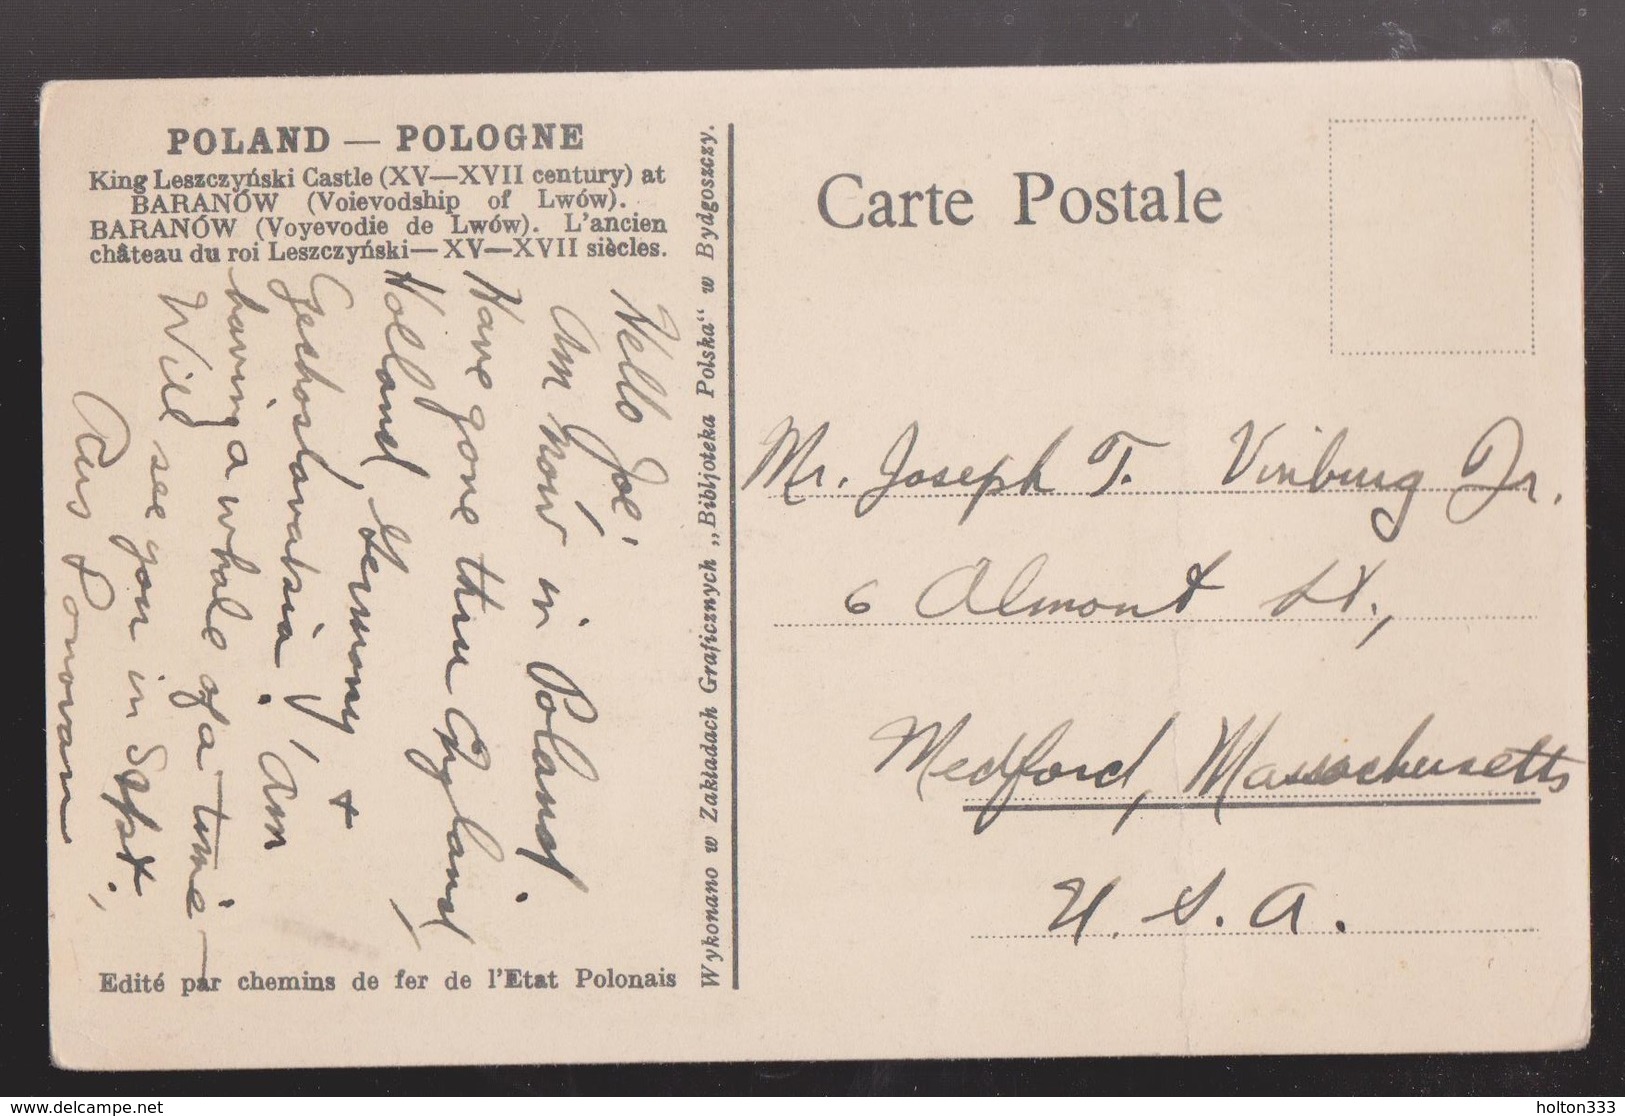 POLAND — POLOGNE
King Leszczyński Castle (XV—XVII century) at
BARANÓW (Voievodship of Lwów).
BARANÓW (Voyevodie de Lwów). L'ancien
château du roi Leszczyński— XV—XVII siècles.
Hello Joe,
Am now in Poland.
Have gone thru England,
Holland, Germany +
Gechoslavakia. Am
having a whale of a time —
Will see you in Sept.,
Donovan
Edité par chemins de fer de l'Etat Polonais
Wykonano w Zakładach Graficznych „Bibljoteka Polska" w Bydgoszczy.
Carte Postale
Mr. Joseph T. Vinburg Jr.
6 Almont St.,
Medford, Massachusetts
U. S. A.
holton333